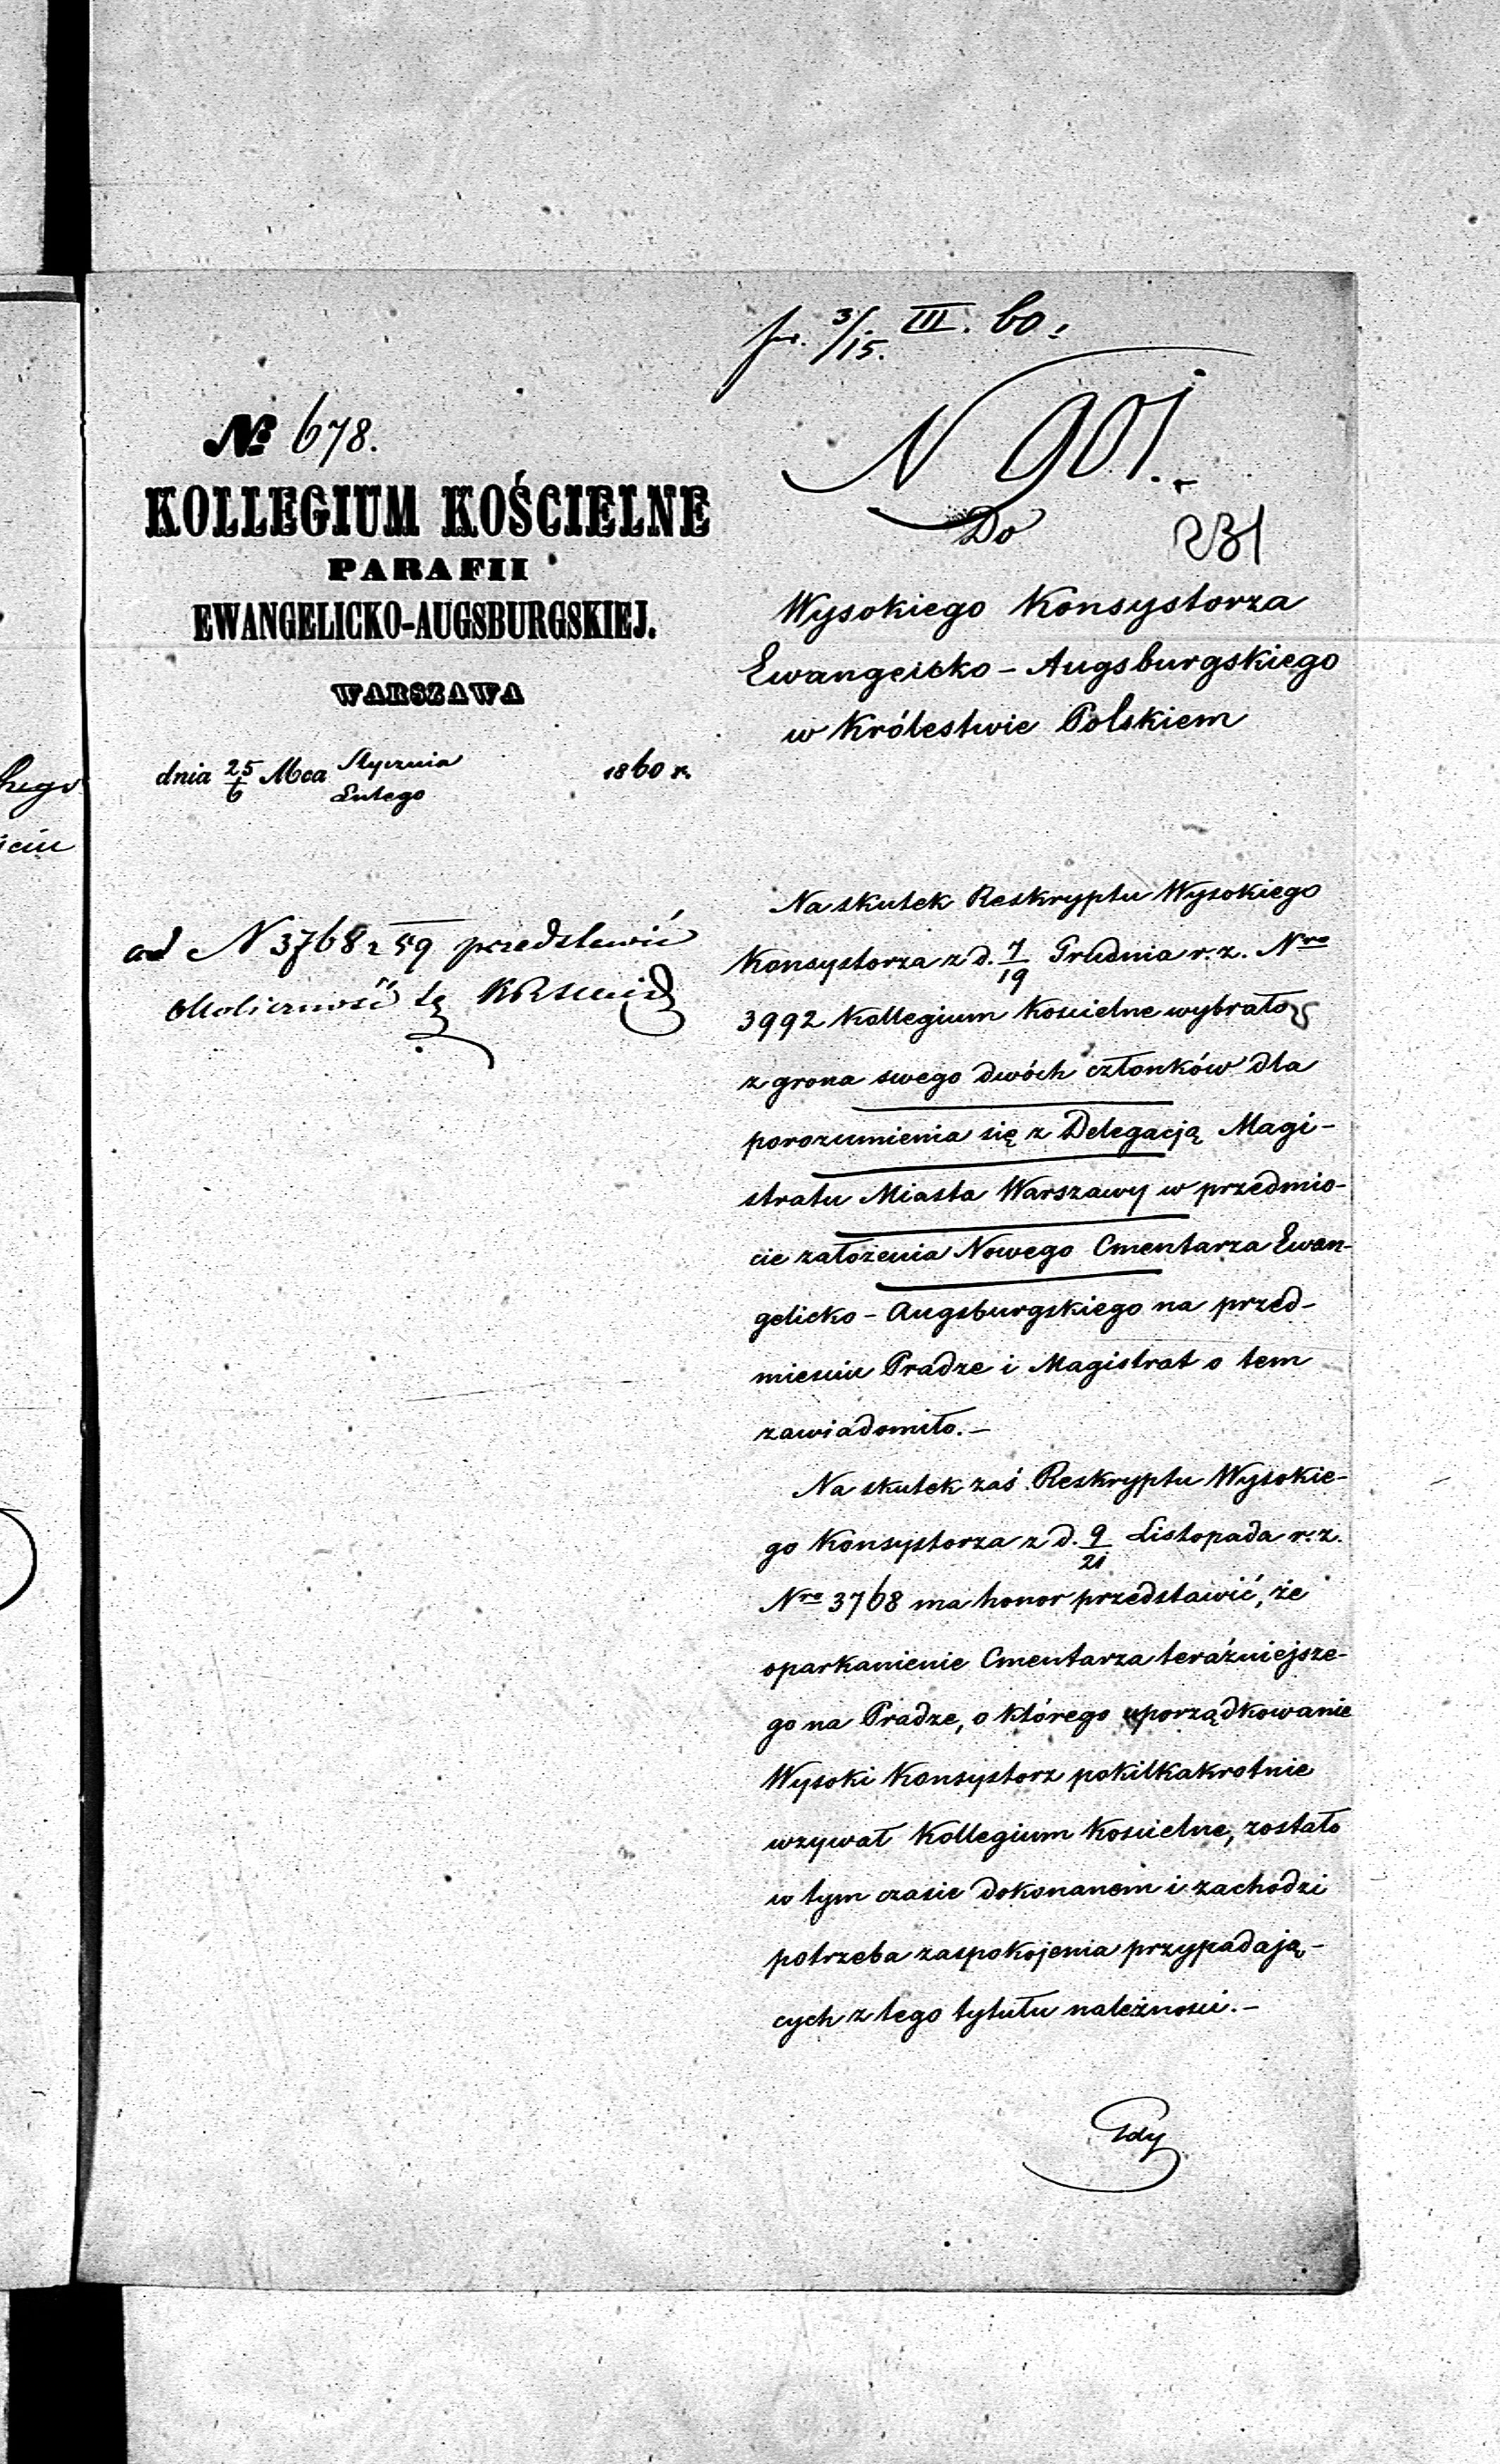 pr. 3/15. III. 60.
N 901.
231
№ 678.
KOLLEGIUM KOŚCIELNE
PARAFII
EWANGELICKO-AUGSBURGSKIEJ.
WARSZAWA
dnia 25/6 Mca Stycznia/Lutego 1860 r.
ad N 3768 r 59 przedstawić
okoliczność tę
Do
Wysokiego Konsystorza
Ewangeicko – Augsburgskiego
w Królestwie Polskiem
Na skutek Reskryptu Wysokiego
Konsystorza z d. 7/19 Grudnia r. z. Nro
3992 Kollegium Koscielne wybrało
z grona swego dwóch członków dla
porozumienia się z Delegacją Magi-
stratu Miasta Warszawy w przedmio-
cie założenia Nowego Cmentarza Ewan-
gelicko – Augsburgskiego na przed-
miesciu Pradze i Magistrat o tem
zawiadomiło. –
Na skutek zaś Reskryptu Wysokie-
go Konsystorza z d. 9/21 Listopada r. z.
Nro 3768 ma honor przedstawić, że
oparkanienie Cmentarza teraźniejsze-
go na Pradze, o którego uporządkowanie
Wysoki Konsystorz pokilkakrotnie
wzywał Kollegium Koscielne, zostało
w tym czasie dokonanem i zachodzi
potrzeba zaspokojenia przypadają-
cych z tego tytułu należnosci. –
Gdy